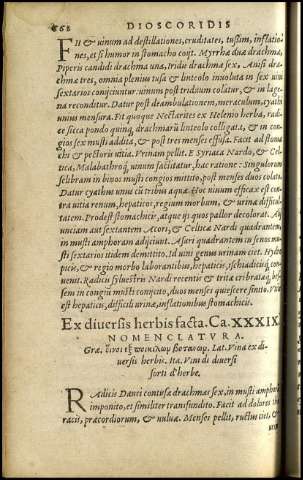 668 DIOSCORIDIS
FIt & uinum ad destillationes, cruditates, tussim, inflatio-
nes, et si humor in stomacho coiit. Myrrhæ duæ drachmæ,
Piperis candidi drachma una, Iridis drachmæ sex, Anisi dra-
chmæ tres, omnia plenius tusa & linteolo inuoluta in sex uini
sextarios conijciuntur. uinum post triduum colatur, & in lage-
na reconditur. Datur post deambulationem, meraculum, cyathi
unius mensura. Fit quoque Nectarites ex Helenio herba, radi-
ce sicca pondo quinq; drachmarũ linteolo colligata, & in con-
gios sex musti addita, & post tres menses effusa. Facit ad stoma
chi & pectoris uitia. Vrinam pellit. E Syriaca Nardo, & Cel-
tica, Malabathroq; uinum factitatur, hac ratione: Singulorum
selibram in binos musti congios mittito, post menses duo colato.
Datur cyathus unus cũ tribus aquæ. Hoc uinum efficax est con-
tra uitia renum, hepaticos, regium morbum, & urinæ difficul-
tatem. Prodest stomachicis, atque ijs quos pallor decolorat. Ali
unciam aut sextantem Acori, & Celticæ Nardi quadrantem
in musti amphoram adijciunt. Asari quadrantem in senos mu-
sti sextarios itidem demittito. Id uini genus urinam ciet. Hydro
picis, & regio morbo laborantibus, hepaticis, ischiadicisq; con-
uenit. Radicis syluestris Nardi recentis & tritæ cribratæq; bes-
sem in congiũ musti compcito, duos menses quiescere sinito. Pro
est hepaticis, difficili urinæ, inflationibus stomachicis.
Ex diuersis herbis facta. Ca. XXXIX
NOMENCLATVRA.
Græ. οἶνοι ἐξ ποικίλων βοτανῶν. Lat. Vina ex di-
uersis herbis. Ita. Vin di diuersi
sorti d'herbe.
RAdicis Dauci contusæ drachmas sex, in musti amphorã
imponito, et similiter transfundito. Facit ad dolores tho
racis, præcordiorum, & uuluæ. Menses pellit, ructus ciet, &